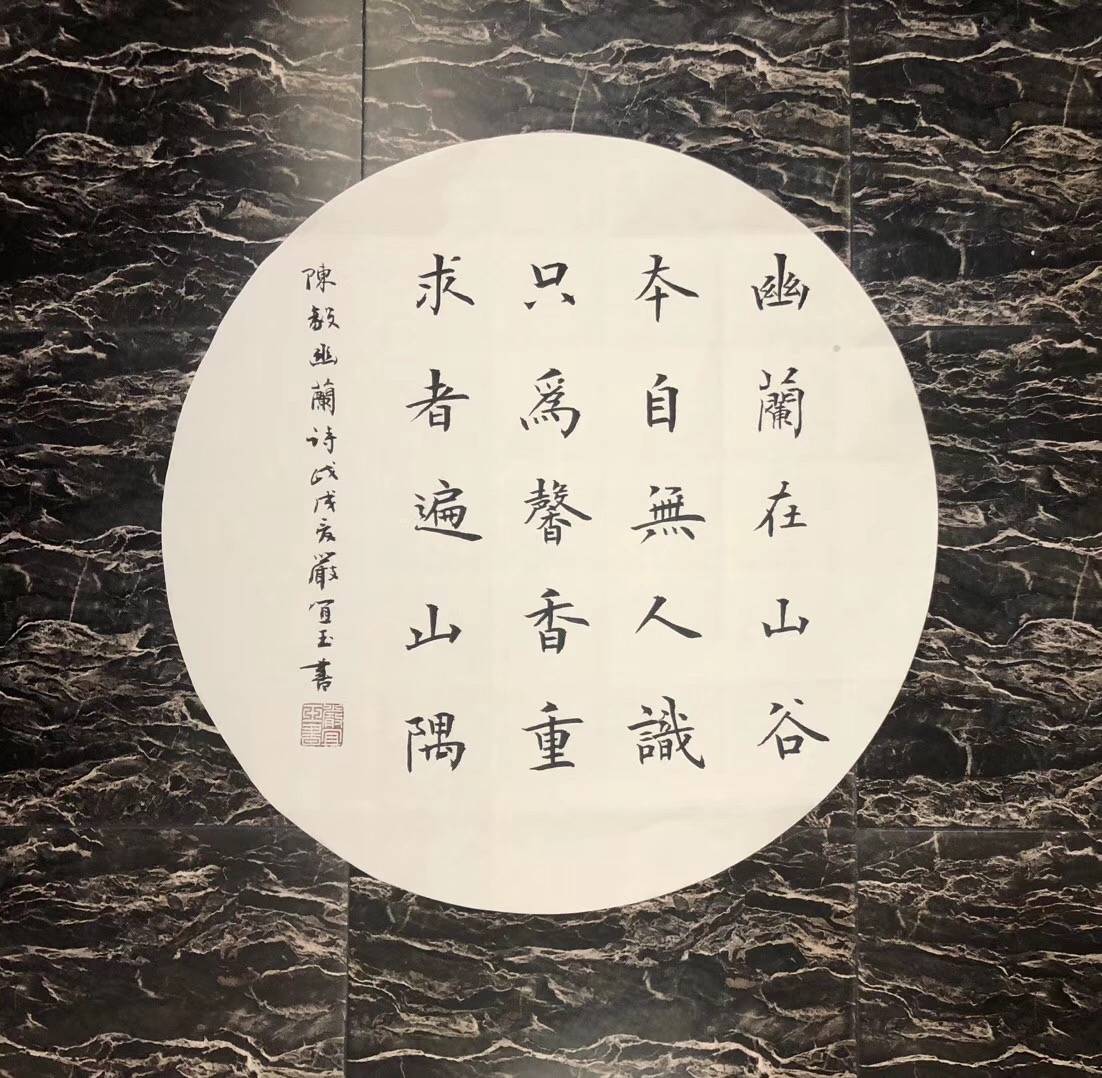 幽蘭在山谷
本自無人識
只爲馨香重
求者遍山隅
陳毅幽蘭詩戊戌夏嚴宜玉書